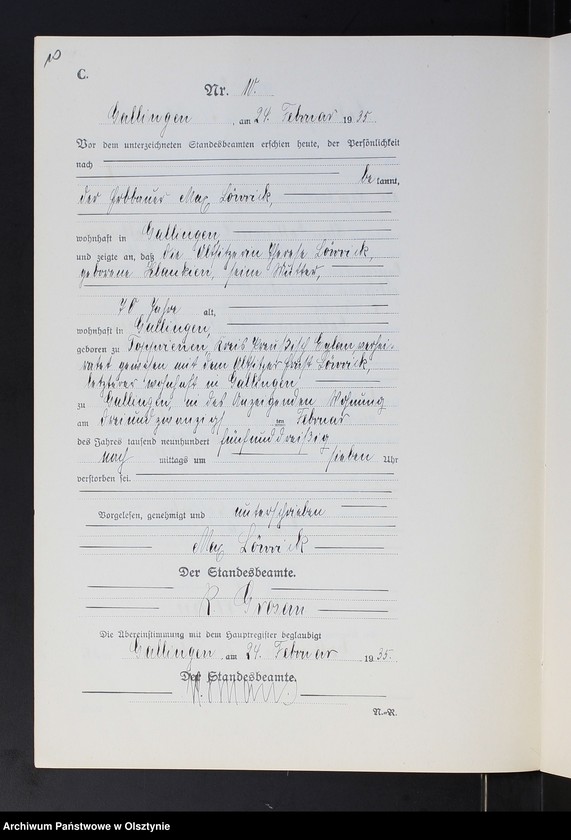 10
C.
Nr. 10.
Gallingen, am 24. Februar 1935.
Vor dem unterzeichneten Standesbeamten erschien heute, der Persönlichkeit
nach
bekannt,
der Erbbauer Max Löwrick,
wohnhaft in Gallingen,
und zeigte an, daß die Altsitzerin Therese Löwrick,
geborene seine Mutter,
70 Jahre alt,
wohnhaft in Gallingen,
geboren zu Kreis Preußisch Eylau, verhei-
ratet gewesen mit dem Altsitzer Löwrick,
letzterer wohnhaft in Gallingen,
zu Gallingen, in des Anzeigenden Wohnung
am dreiundzwanzigsten Februar
des Jahres tausend neunhundert fünfunddreißig
nachmittags um sieben Uhr
verstorben sei.
Vorgelesen, genehmigt und unterschrieben
Max Löwrick
Der Standesbeamte.
R.
Die Übereinstimmung mit dem Hauptregister beglaubigt
Gallingen, am 24. Februar 1935.
Der Standesbeamte.
N.-R.
Archiwum Państwowe w Olsztynie